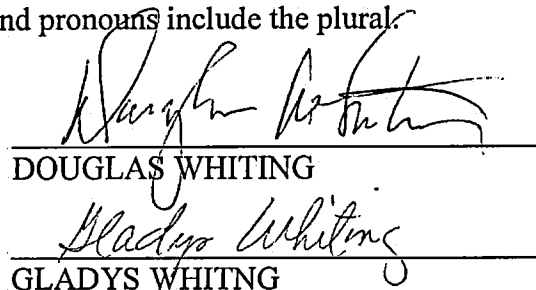 nd pronouns include the plural.
Douglas Whiting
DOUGLAS WHITING
Gladys Whiting
GLADYS WHITNG